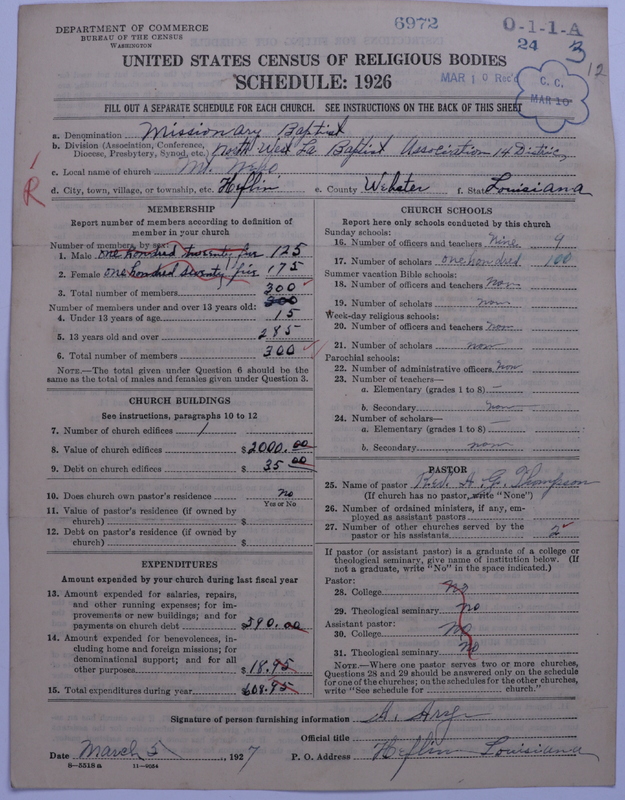 DEPARTMENT OF COMMERCE
BUREAU OF THE CENSUS
WASHINGTON
6972
0-1-1-A
24 3
12
UNITED STATES CENSUS OF RELIGIOUS BODIES
SCHEDULE: 1926
MAR 10 Rec'd
C. C.
MAR 10
FILL OUT A SEPARATE SCHEDULE FOR EACH CHURCH. SEE INSTRUCTIONS ON THE BACK OF THIS SHEET
a. Denomination Missionary Baptist
b. Division (Association, Conference, Diocese, Presbytery, Synod, etc.) North West La Baptist Association 14 District
c. Local name of church Mt.
R
d. City, town, village, or township, etc. Heflin e. County Webster f. State Louisiana
MEMBERSHIP
Report number of members according to definition of member in your church
Number of members, by sex:
1. Male one hundred twenty five 125
2. Female one hundred seventy five 175
3. Total number of members 300
300
Number of members under and over 13 years old:
4. Under 13 years of age 15
5. 13 years old and over 285
6. Total number of members 300
NOTE.—The total given under Question 6 should be the same as the total of males and females given under Question 3.
CHURCH BUILDINGS
See instructions, paragraphs 10 to 12
7. Number of church edifices 1
8. Value of church edifices $2000.00
9. Debt on church edifices $35.00
10. Does church own pastor's residence no
Yes or No
11. Value of pastor's residence (if owned by church) $
12. Debt on pastor's residence (if owned by church) $
EXPENDITURES
Amount expended by your church during last fiscal year
13. Amount expended for salaries, repairs, and other running expenses; for improvements or new buildings; and for payments on church debt $590.00
14. Amount expended for benevolences, including home and foreign missions; for denominational support; and for all other purposes $18.95
15. Total expenditures during year $608.95
CHURCH SCHOOLS
Report here only schools conducted by this church
Sunday schools:
16. Number of officers and teachers nine 9
17. Number of scholars one hundred 100
Summer vacation Bible schools:
18. Number of officers and teachers non
19. Number of scholars non
Week-day religious schools:
20. Number of officers and teachers non
21. Number of scholars non
Parochial schools:
22. Number of administrative officers non
23. Number of teachers—
a. Elementary (grades 1 to 8)
b. Secondary non
24. Number of scholars—
a. Elementary (grades 1 to 8)
b. Secondary non
PASTOR
25. Name of pastor Rev. A. G. Thompson
(If church has no pastor, write "None")
26. Number of ordained ministers, if any, employed as assistant pastors
27. Number of other churches served by the pastor or his assistants 2
If pastor (or assistant pastor) is a graduate of a college or theological seminary, give name of institution below. (If not a graduate, write "No" in the space indicated.)
Pastor:
28. College no
29. Theological seminary no
Assistant pastor:
30. College No
31. Theological seminary No
NOTE.—Where one pastor serves two or more churches, Questions 28 and 29 should be answered only on the schedule for one of the churches; on the schedules for the other churches, write "See schedule for church."
Signature of person furnishing information A.
Official title
Date March 5, 1927 P. O. Address Heflin Louisiana
8—5518 a 11—9034